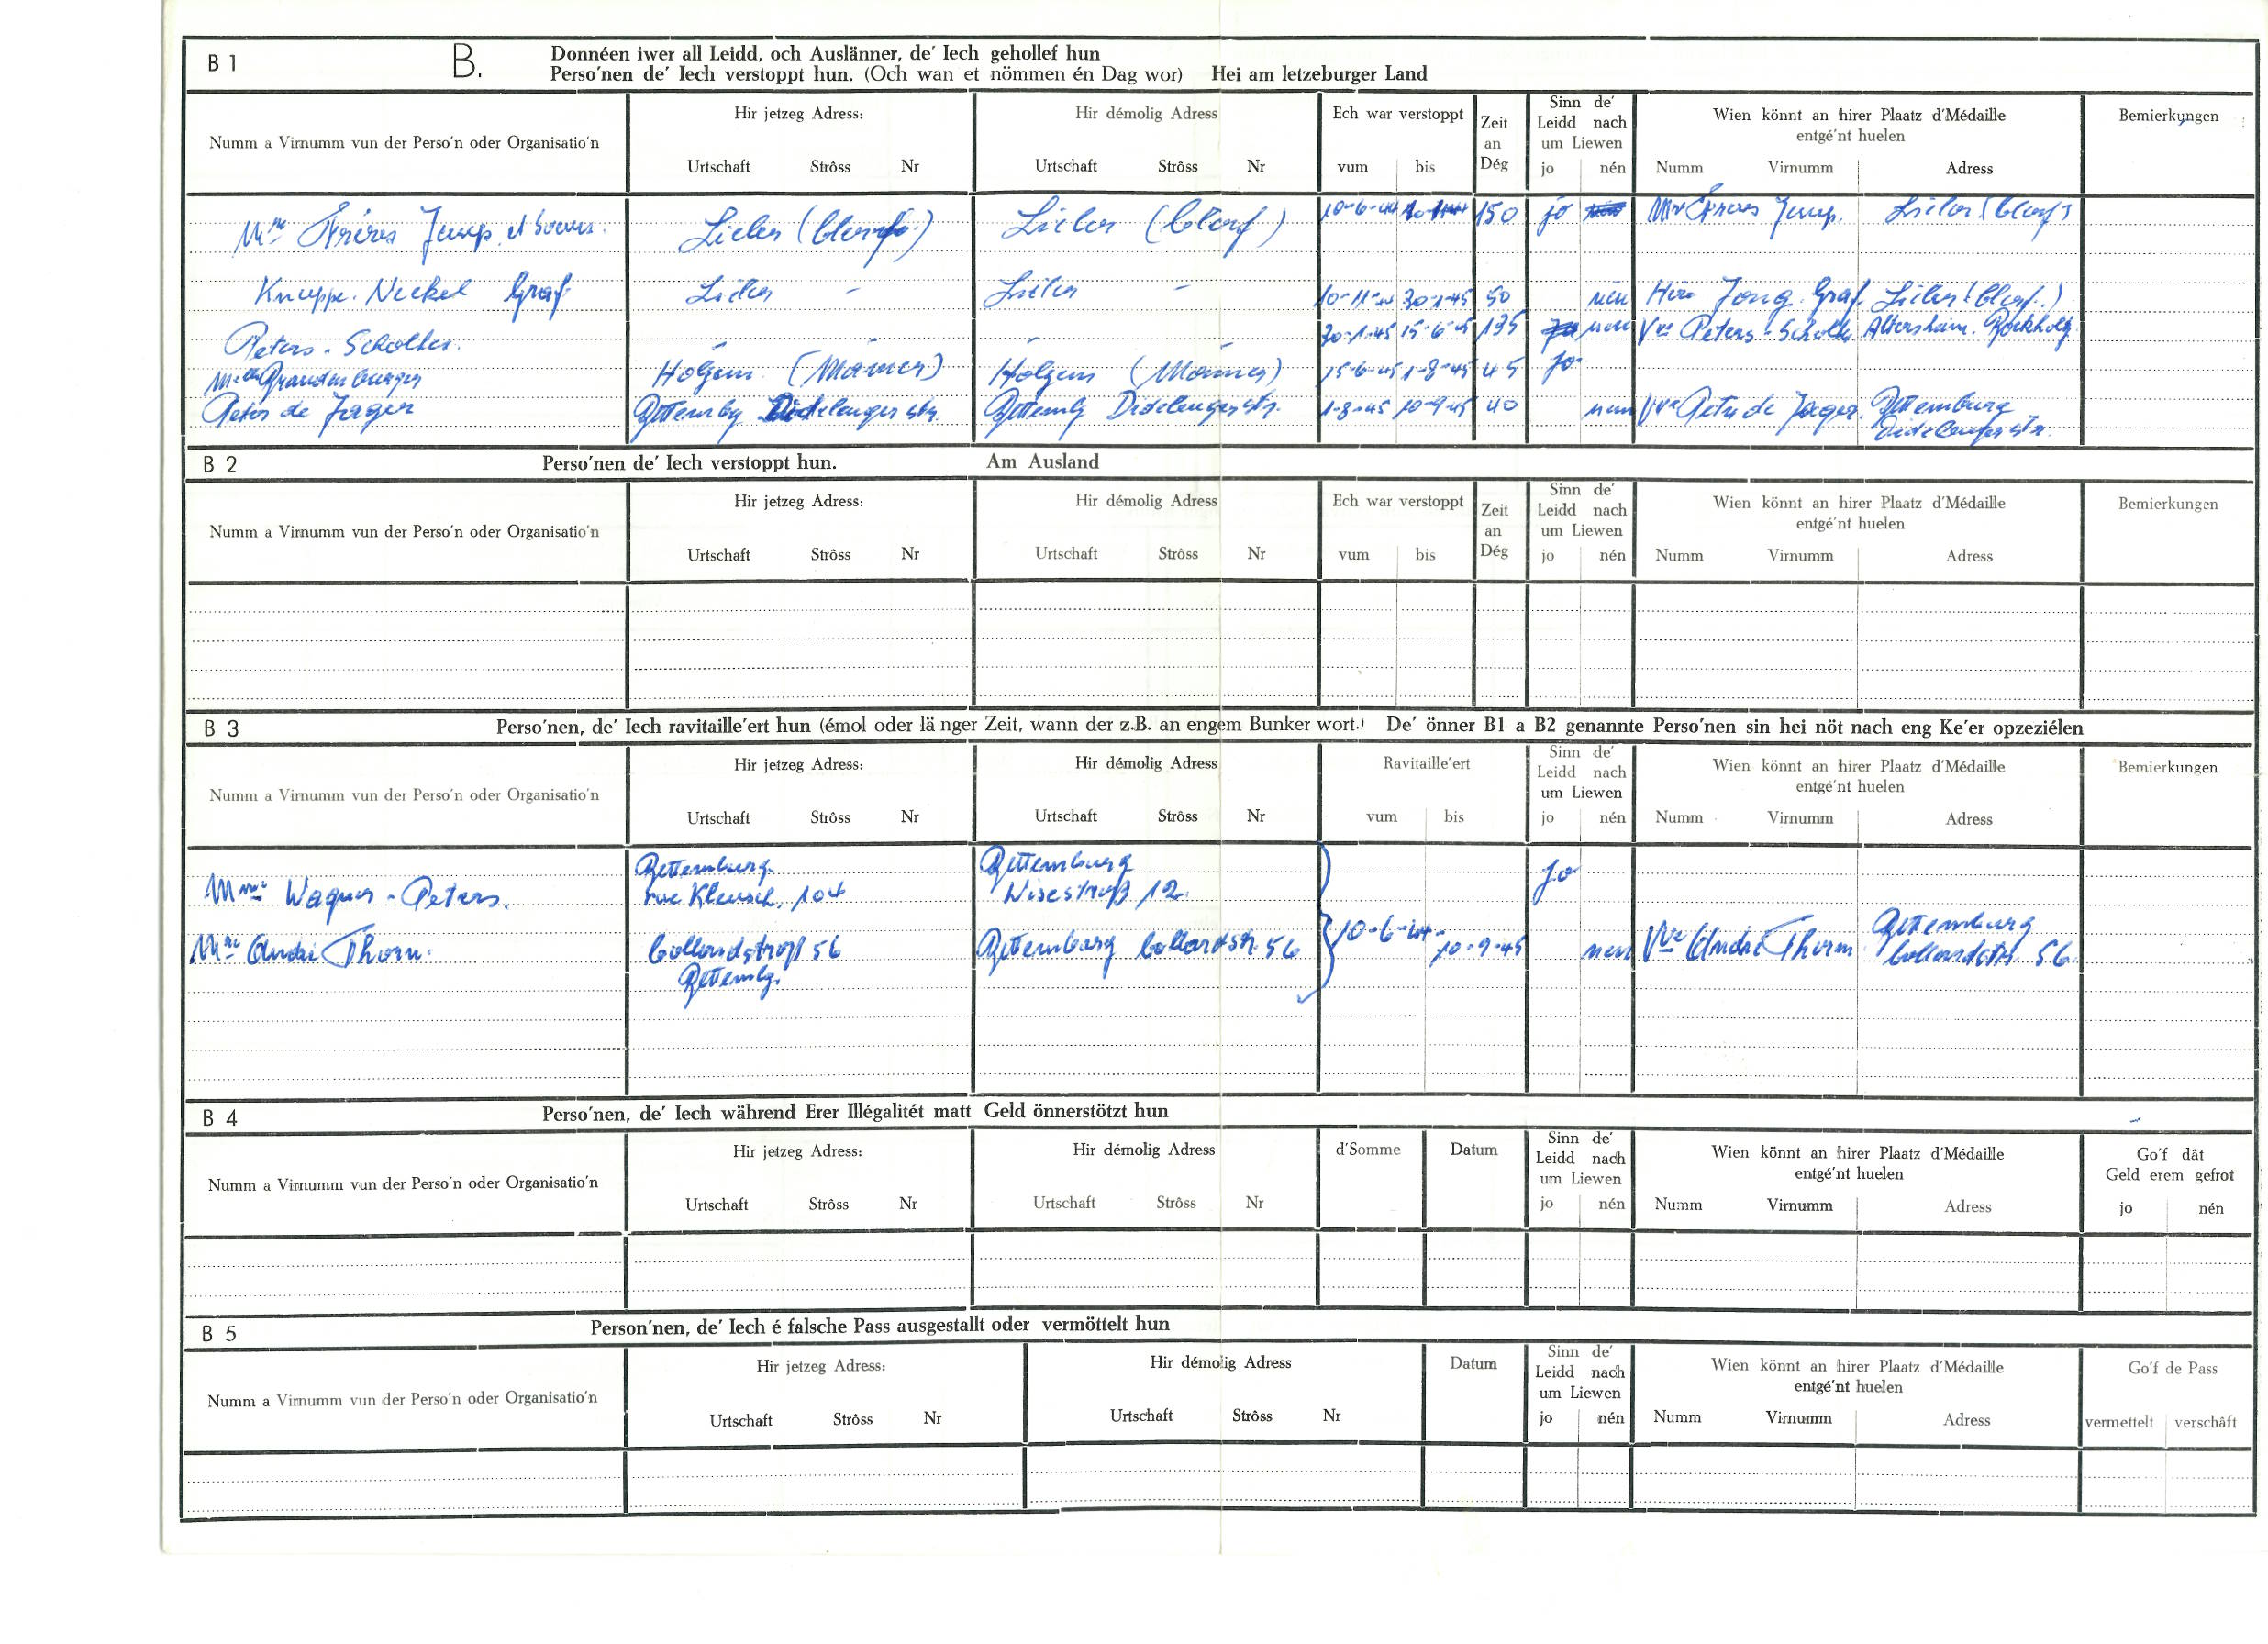 B 1
B.
Donnéen iwer all Leidd, och Auslänner, de′ Iech gehollef hun
Perso′nen de′ Iech verstoppt hun. (Och wan et nömmen én Dag wor) Hei am letzeburger Land
Numm a Virnumm vun der Perso′n oder Organisatio′n
Hir jetzeg Adress:
Urtschaft Ströss Nr
Hir démolig Adress
Urtschaft Ströss Nr
Ech war verstoppt
vum bis
Zeit
an
Dég
Sinn de′
Leidd nach
um Liewen
jo nén
Wien könnt an hirer Plaatz d′Médaille
entgé′nt huelen
Numm Virnumm Adress
Bemierkungen
Frères Jemp et Lieler (Clerf) Lieler (Clerf) 10-6-44 150 jo Frères Jemp. Lieler (Clerf)
Knuppe. Neckel Graf Lieler - Lieler - 30-1-45 50 nén Jong. Graf. Lieler (Clerf.)
Peters - Scholtes. 30-1-45 15-6-45 135 nén Vve Peters - Scholtes Altersheim.
Brandenburger Holzem (Mamer) Holzem (Mamer) 15-6-45 1-8-45 45 jo
Peter de Jager Bettembg Bettembg Didelengerstr. 1-8-45 10-9-45 40 Vve Peter de Jager. Bettemburg
Didelengerstr.
B 2 Perso′nen de′ Iech verstoppt hun. Am Ausland
Numm a Virnumm vun der Perso′n oder Organisatio′n
Hir jetzeg Adress:
Urtschaft Ströss Nr
Hir démolig Adress
Urtschaft Ströss Nr
Ech war verstoppt
vum bis
Zeit
an
Dég
Sinn de′
Leidd nach
um Liewen
jo nén
Wien könnt an hirer Plaatz d′Médaille
entgé′nt huelen
Numm Virnumm Adress
Bemierkungen
B 3 Perso′nen, de′ Iech ravitaille′ert hun (émol oder länger Zeit, wann der z.B. an engem Bunker wort.) De′ önner B1 a B2 genannte Perso′nen sin hei nöt nach eng Ke′er opzeziélen
Numm a Virnumm vun der Perso′n oder Organisatio′n
Hir jetzeg Adress:
Urtschaft Ströss Nr
Hir démolig Adress
Urtschaft Ströss Nr
Ravitaille′ert
vum bis
Sinn de′
Leidd nach
um Liewen
jo nén
Wien könnt an hirer Plaatz d′Médaille
entgé′nt huelen
Numm Virnumm Adress
Bemierkungen
Bettemburg. Bettemburg jo
Mme Wagner - Peters. rue Klensch, 104 12.
Mr André Thorn. 56 Bettemburg 56 10-6-44- 10-9-45 Vve André Thorn Bettemburg
Bettembg. 56.
B 4 Perso′nen, de′ Iech während Erer Illégalitét matt Geld önnerstötzt hun
Numm a Virnumm vun der Perso′n oder Organisatio′n
Hir jetzeg Adress:
Urtschaft Ströss Nr
Hir démolig Adress
Urtschaft Ströss Nr
d′Somme
Datum
Sinn de′
Leidd nach
um Liewen
jo nén
Wien könnt an hirer Plaatz d′Médaille
entgé′nt huelen
Numm Virnumm Adress
Go′f dât
Geld erem gefrot
jo nén
B 5 Person′nen, de′ Iech é falsche Pass ausgestallt oder vermöttelt hun
Numm a Virnumm vun der Perso′n oder Organisatio′n
Hir jetzeg Adress:
Urtschaft Strôss Nr
Hir démolig Adress
Urtschaft Strôss Nr
Datum
Sinn de′
Leidd nach
um Liewen
jo nén
Wien könnt an hirer Plaatz d′Médaille
entgé′nt huelen
Numm Virnumm Adress
Go′f de Pass
vermettelt verschâft